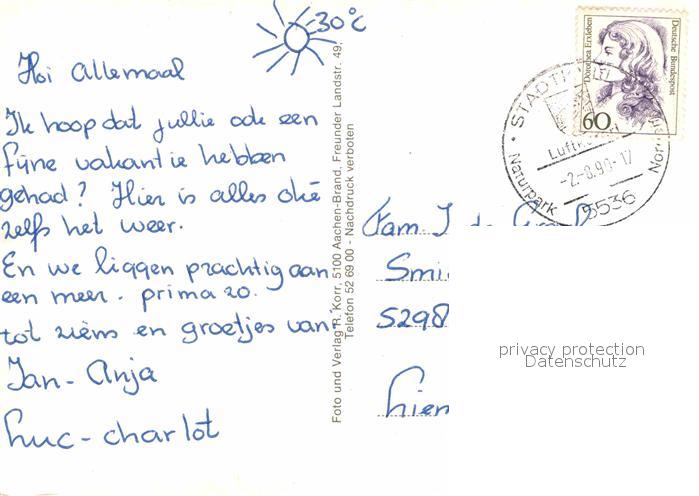 30°C
Hoi allemaal
Ik hoop dat jullie ook een
fijne vakantie hebben
gehad? Hier is alles oké
zelfs het weer.
En we liggen prachtig aan
een meer. prima zo.
tot ziens en groetjes van
Jan - Anja
Luc - charlot
Foto und Verlag R. Korr, 5100 Aachen-Brand, Freunder Landstr. 49,
Telefon 52 69 00 - Nachdruck verboten
Dorothea Erxleben
Deutsche Bundespost
60
Luftk
-2.-8.90-17
Naturpark
Nor
5536
Fam J. de
Smi
5298
Lien
privacy protection
Datenschutz